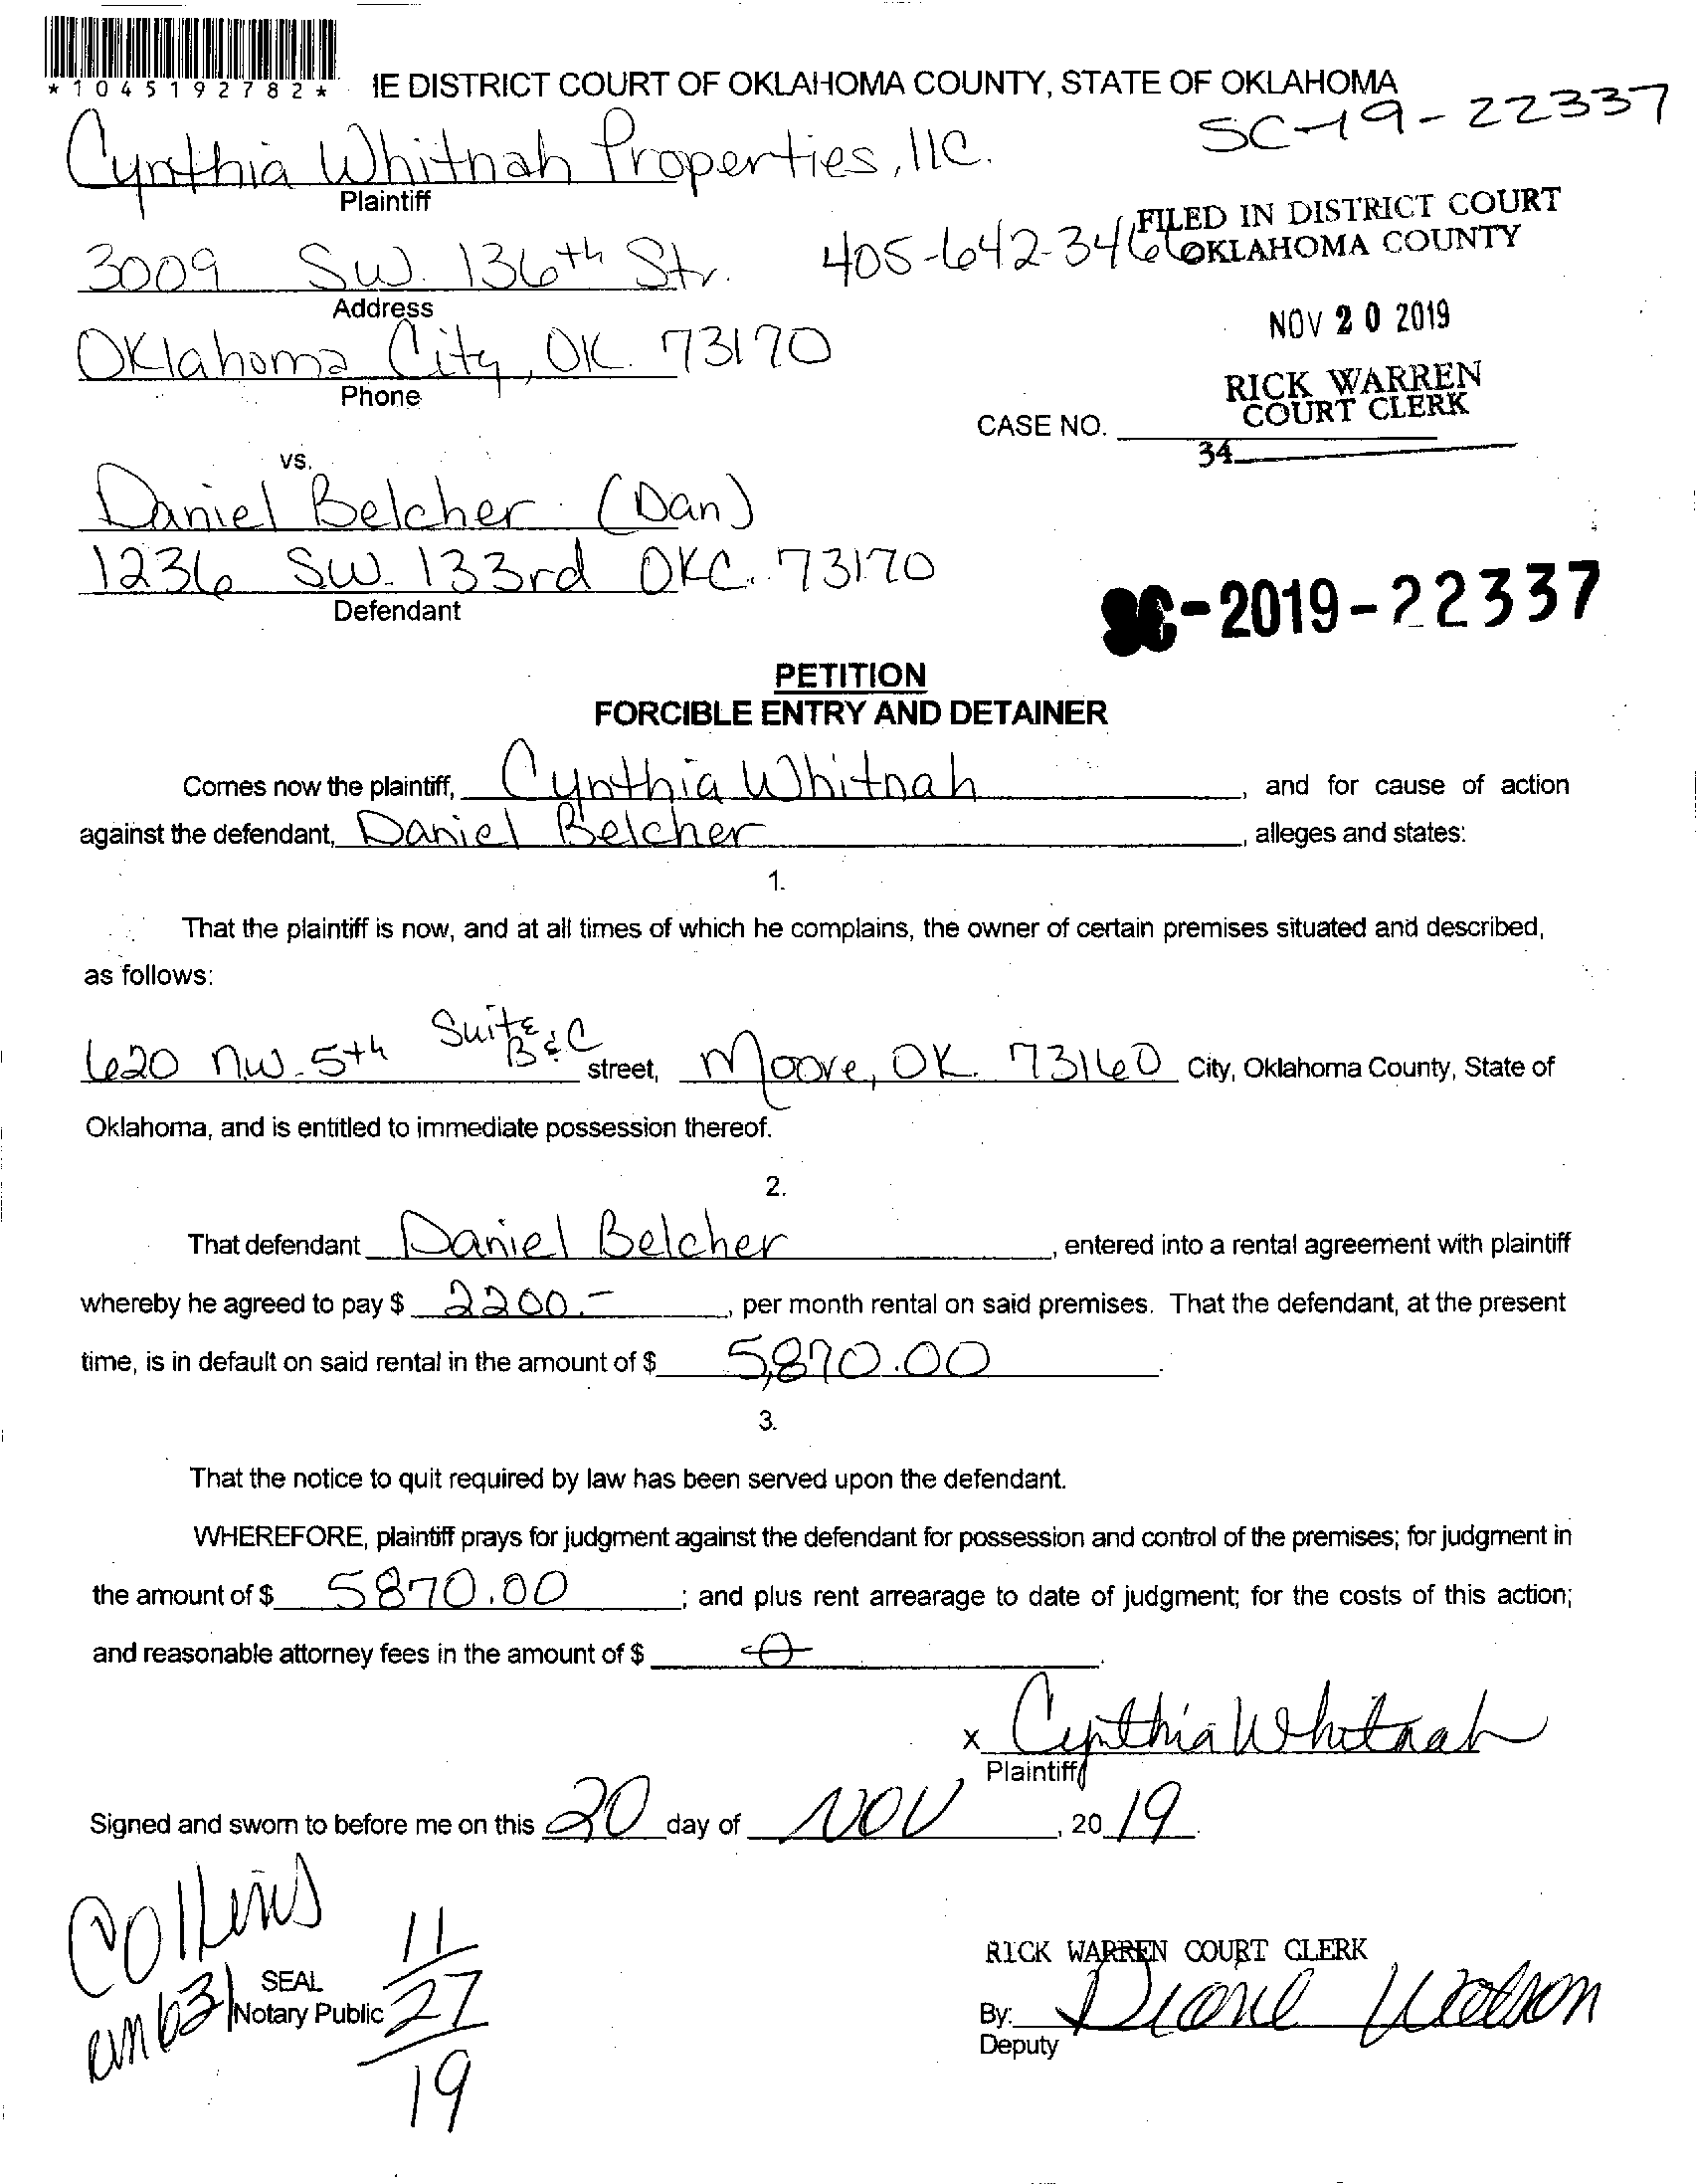 *1045192782*
IE DISTRICT COURT OF OKLAHOMA COUNTY, STATE OF OKLAHOMA
SC-19-22337
Cynthia Whitnah Properties, llc.
Plaintiff
FILED IN DISTRICT COURT
OKLAHOMA COUNTY
3009 SW. 136th Str. 405-642-3466
Address
NOV 20 2019
Oklahoma City, OK. 73170
Phone
RICK WARREN
COURT CLERK
CASE NO.
34
vs.
Daniel Belcher (Dan)
1236 SW. 133rd OKC. 73170
Defendant
SC-2019-22337
PETITION
FORCIBLE ENTRY AND DETAINER
Comes now the plaintiff, Cynthia Whitnah, and for cause of action
against the defendant, Daniel Belcher, alleges and states:
1.
That the plaintiff is now, and at all times of which he complains, the owner of certain premises situated and described,
as follows:
620 NW. 5th Suite B & C street, Moore, OK. 73160 City, Oklahoma County, State of
Oklahoma, and is entitled to immediate possession thereof.
2.
That defendant Daniel Belcher, entered into a rental agreement with plaintiff
whereby he agreed to pay $ 2200.-, per month rental on said premises. That the defendant, at the present
time, is in default on said rental in the amount of $ 5,870.00.
3.
That the notice to quit required by law has been served upon the defendant.
WHEREFORE, plaintiff prays for judgment against the defendant for possession and control of the premises; for judgment in
the amount of $ 5870.00; and plus rent arrearage to date of judgment; for the costs of this action;
and reasonable attorney fees in the amount of $ 0.
x Cynthia Whitnah
Plaintiff
Signed and sworn to before me on this 20 day of NOV, 2019.
Collins
11
27
19
SEAL
Notary Public
RICK WARREN COURT CLERK
By: Diane Watson
Deputy